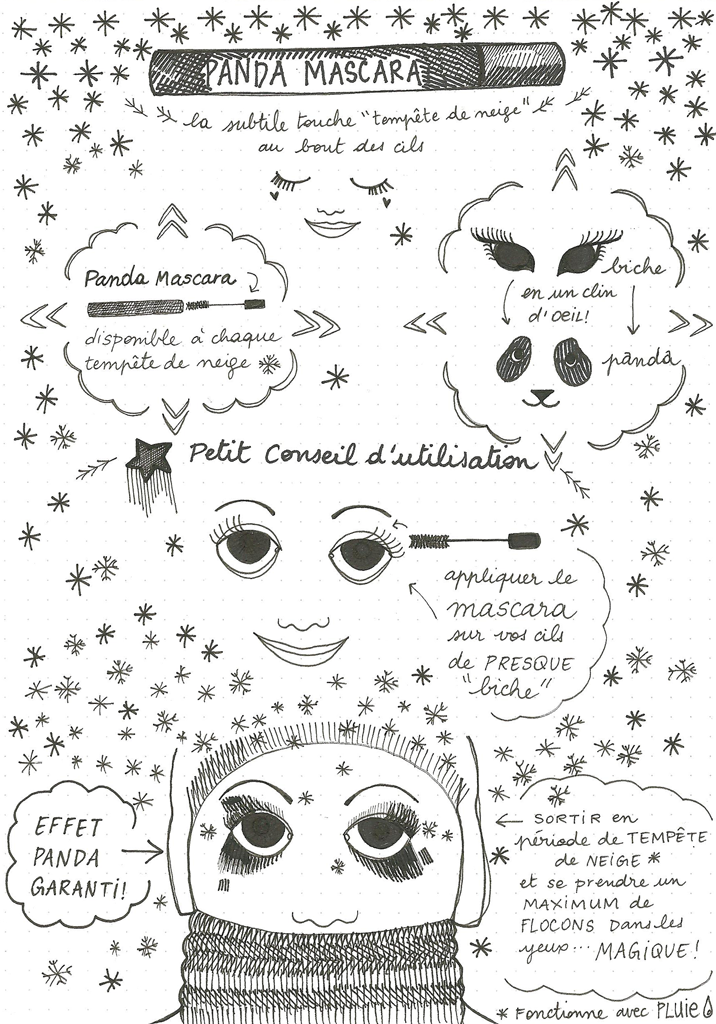 PANDA MASCARA
la subtile touche "tempête de neige"
au bout des cils
Panda Mascara
disponible à chaque
tempête de neige
biche
en un clin
d'oeil!
panda
Petit Conseil d'utilisation
appliquer le
mascara
sur vos cils
de PRESQUE
"biche"
EFFET
PANDA
GARANTI!
SORTIR en
période de TEMPÊTE
de NEIGE *
et se prendre un
MAXIMUM de
FLOCONS Dans les
yeux... MAGIQUE!
* Fonctionne avec PLUIE